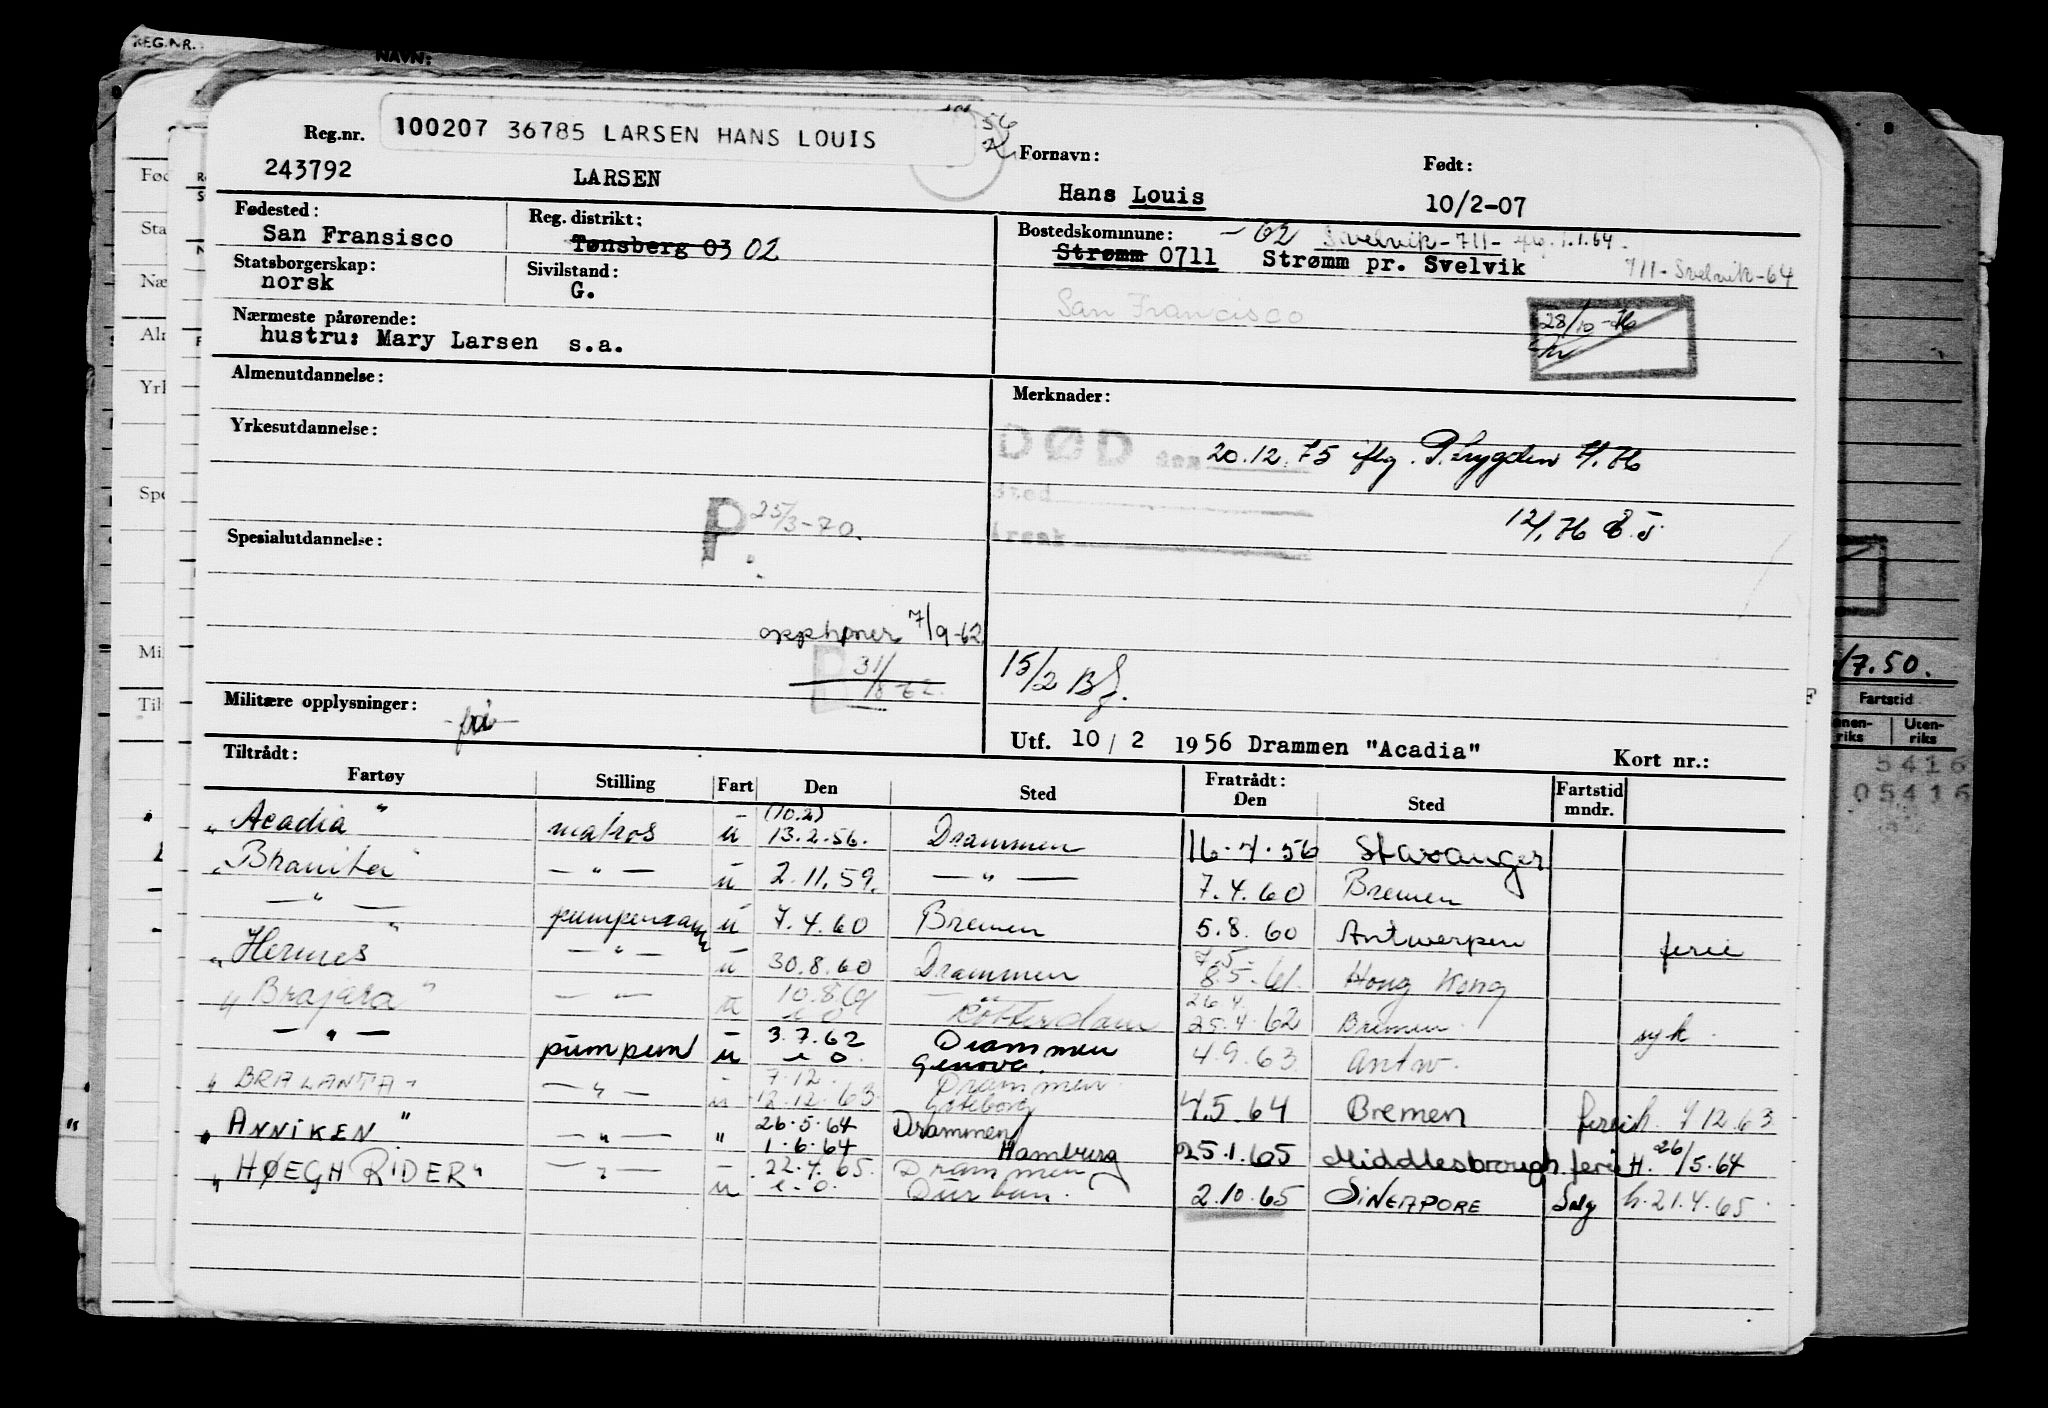 REG.NR. NAVN:
Reg.nr. 100207 36785 LARSEN HANS LOUIS 56
Fornavn: Født:
243792 LARSEN Hans Louis 10/2-07
Fødested: Reg. distrikt: Bostedskommune: -62 Svelvik-711- 1.1.64
San Fransisco Tønsberg 03 02 Strømm 0711 Strømm pr. Svelvik 711-Svelvik-64
Statsborgerskap: Sivilstand:
norsk G.
San Francisco
Nærmeste pårørende: 28/10
hustru: Mary Larsen s.a.
Almenutdannelse: Merknader:
Yrkesutdannelse:
DØD den 20.12.75 iflg.
Sted
P 25/3-70. Årsak
Spesialutdannelse:
opphører 7/9-62
31/8 62. 15/2
Militære opplysninger: -fri-
Utf. 10/2 1956 Drammen "Acadia" Kort nr.:
Tiltrådt: Fratrådt:
Fartøy Stilling Fart Den Sted Den Sted Fartstid mndr.
"Acadia" matros u (10.2) 13.2.56. Drammen 16.4.56 Stavanger
"Branita" — " — u 2.11.59. — " — 7.4.60 Bremen
— " — pumpemann u 7.4.60 Bremen 5.8.60 Antwerpen ferie
"Hermes" — " — u 30.8.60 Drammen 7.5. 8.5.61. Hong Kong
"Brajara" — " — u 10.8.61 e.o. Rotterdam 26.4. 25.4.62 Bremen. syk.
— " — pumpem u 3.7.62 e.o. Drammen Genova. 4.9.63 Antw.
"BRALANTA" — " — u 7.12. 12.12.63. Drammen Gøteborg 4.5.64 Bremen ferie h. 7.12.63
"ANNIKEN" — " — " 26.5.64 1.6.64 Drammen Hamburg 25.1.65 Middlesbrough ferie H. 26/5.64
"HØEGH RIDER" — " — u 22.4.65. e.o. Drammen Durban. 2.10.65 SINGAPORE h. 21.4.65.
7.50.
Fartstid
Uten-riks
5416
05416